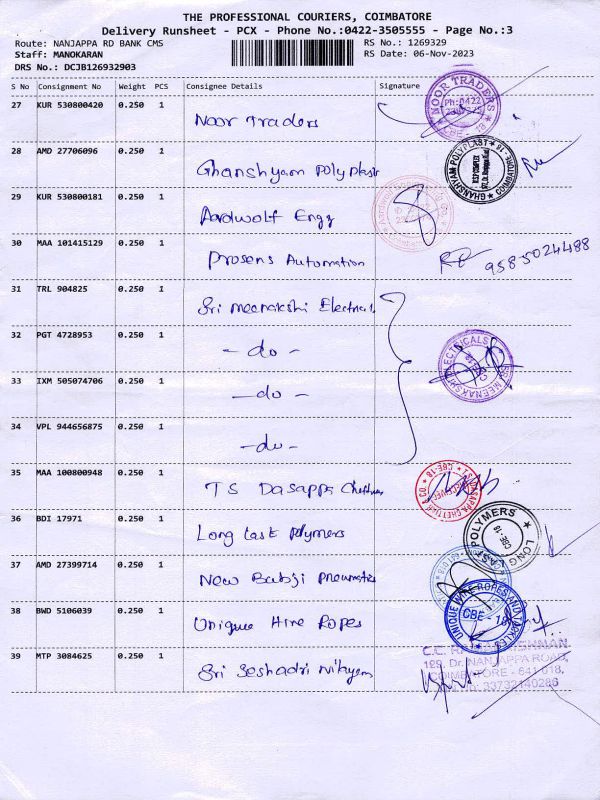 THE PROFESSIONAL COURIERS, COIMBATORE
Delivery Runsheet - PCX - Phone No.:0422-3505555 - Page No.:3
Route: NANJAPPA RD BANK CMS
RS No.: 1269329
Staff: MANOKARAN
RS Date: 06-Nov-2023
DRS No.: DCJB126932903
S No Consignment No Weight PCS Consignee Details Signature
27 KUR 530800420 0.250 1 Noor Traders
NOOR TRADERS
Ph:0422
CBE - 18
28 AMD 27706096 0.250 1 Ghanshyam Polyplast
GHANSHYAM POLYPLAST
COIMBATORE-18
29 KUR 530800181 0.250 1 Aardwolf Engg
30 MAA 101415129 0.250 1 Prosens Automation
9585024488
31 TRL 904825 0.250 1 Sri Meenakshi Electrical
32 PGT 4728953 0.250 1 - do -
SRI MEENAKSHI ELECTRICALS
33 IXM 505074706 0.250 1 - do -
34 VPL 944656875 0.250 1 - do -
35 MAA 100800948 0.250 1 TS Dasappa Chettiar
T.S. DASAPPA CHETTIAR & CO.
CBE-18
36 BDI 17971 0.250 1 Long Last Polymers
LONG LAST POLYMERS
CBE - 18
37 AMD 27399714 0.250 1 New Babji Pneumatics
38 BWD 5106039 0.250 1 Unique Hire Ropes
UNIQUE WIRE ROPES AND
CBE - 18
39 MTP 3084625 0.250 1 Sri Seshadri
129, Dr. NANJAPPA ROAD,
COIMBATORE - 641 018.